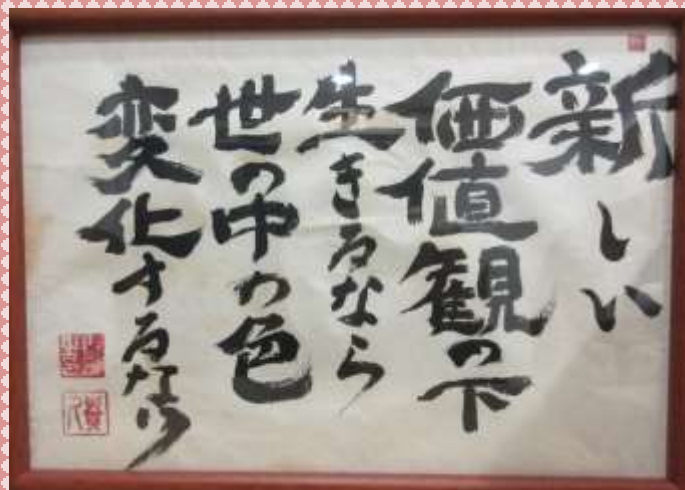 新しい
価値観の下
生きるなら
世の中の色
変化するだろう